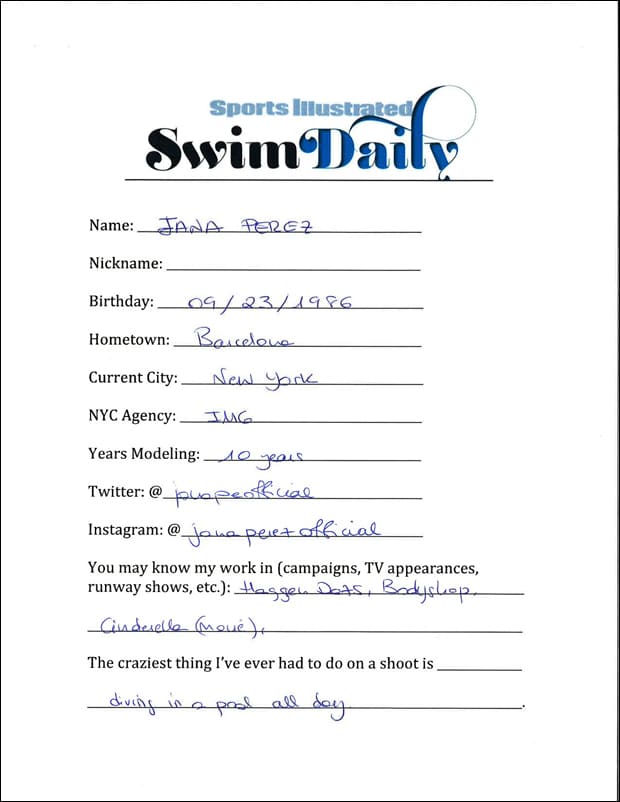 Sports Illustrated
Swim Daily
Name: JANA PEREZ
Nickname:
Birthday: 09/23/1986
Hometown: Barcelona
Current City: New York
NYC Agency: IMG
Years Modeling: 10 years
Twitter: @
Instagram: @janaperezofficial
You may know my work in (campaigns, TV appearances,
runway shows, etc.): Haggen Dats, Bodyshop,
Cinderella (movie),
The craziest thing I've ever had to do on a shoot is
diving in a pool all day.